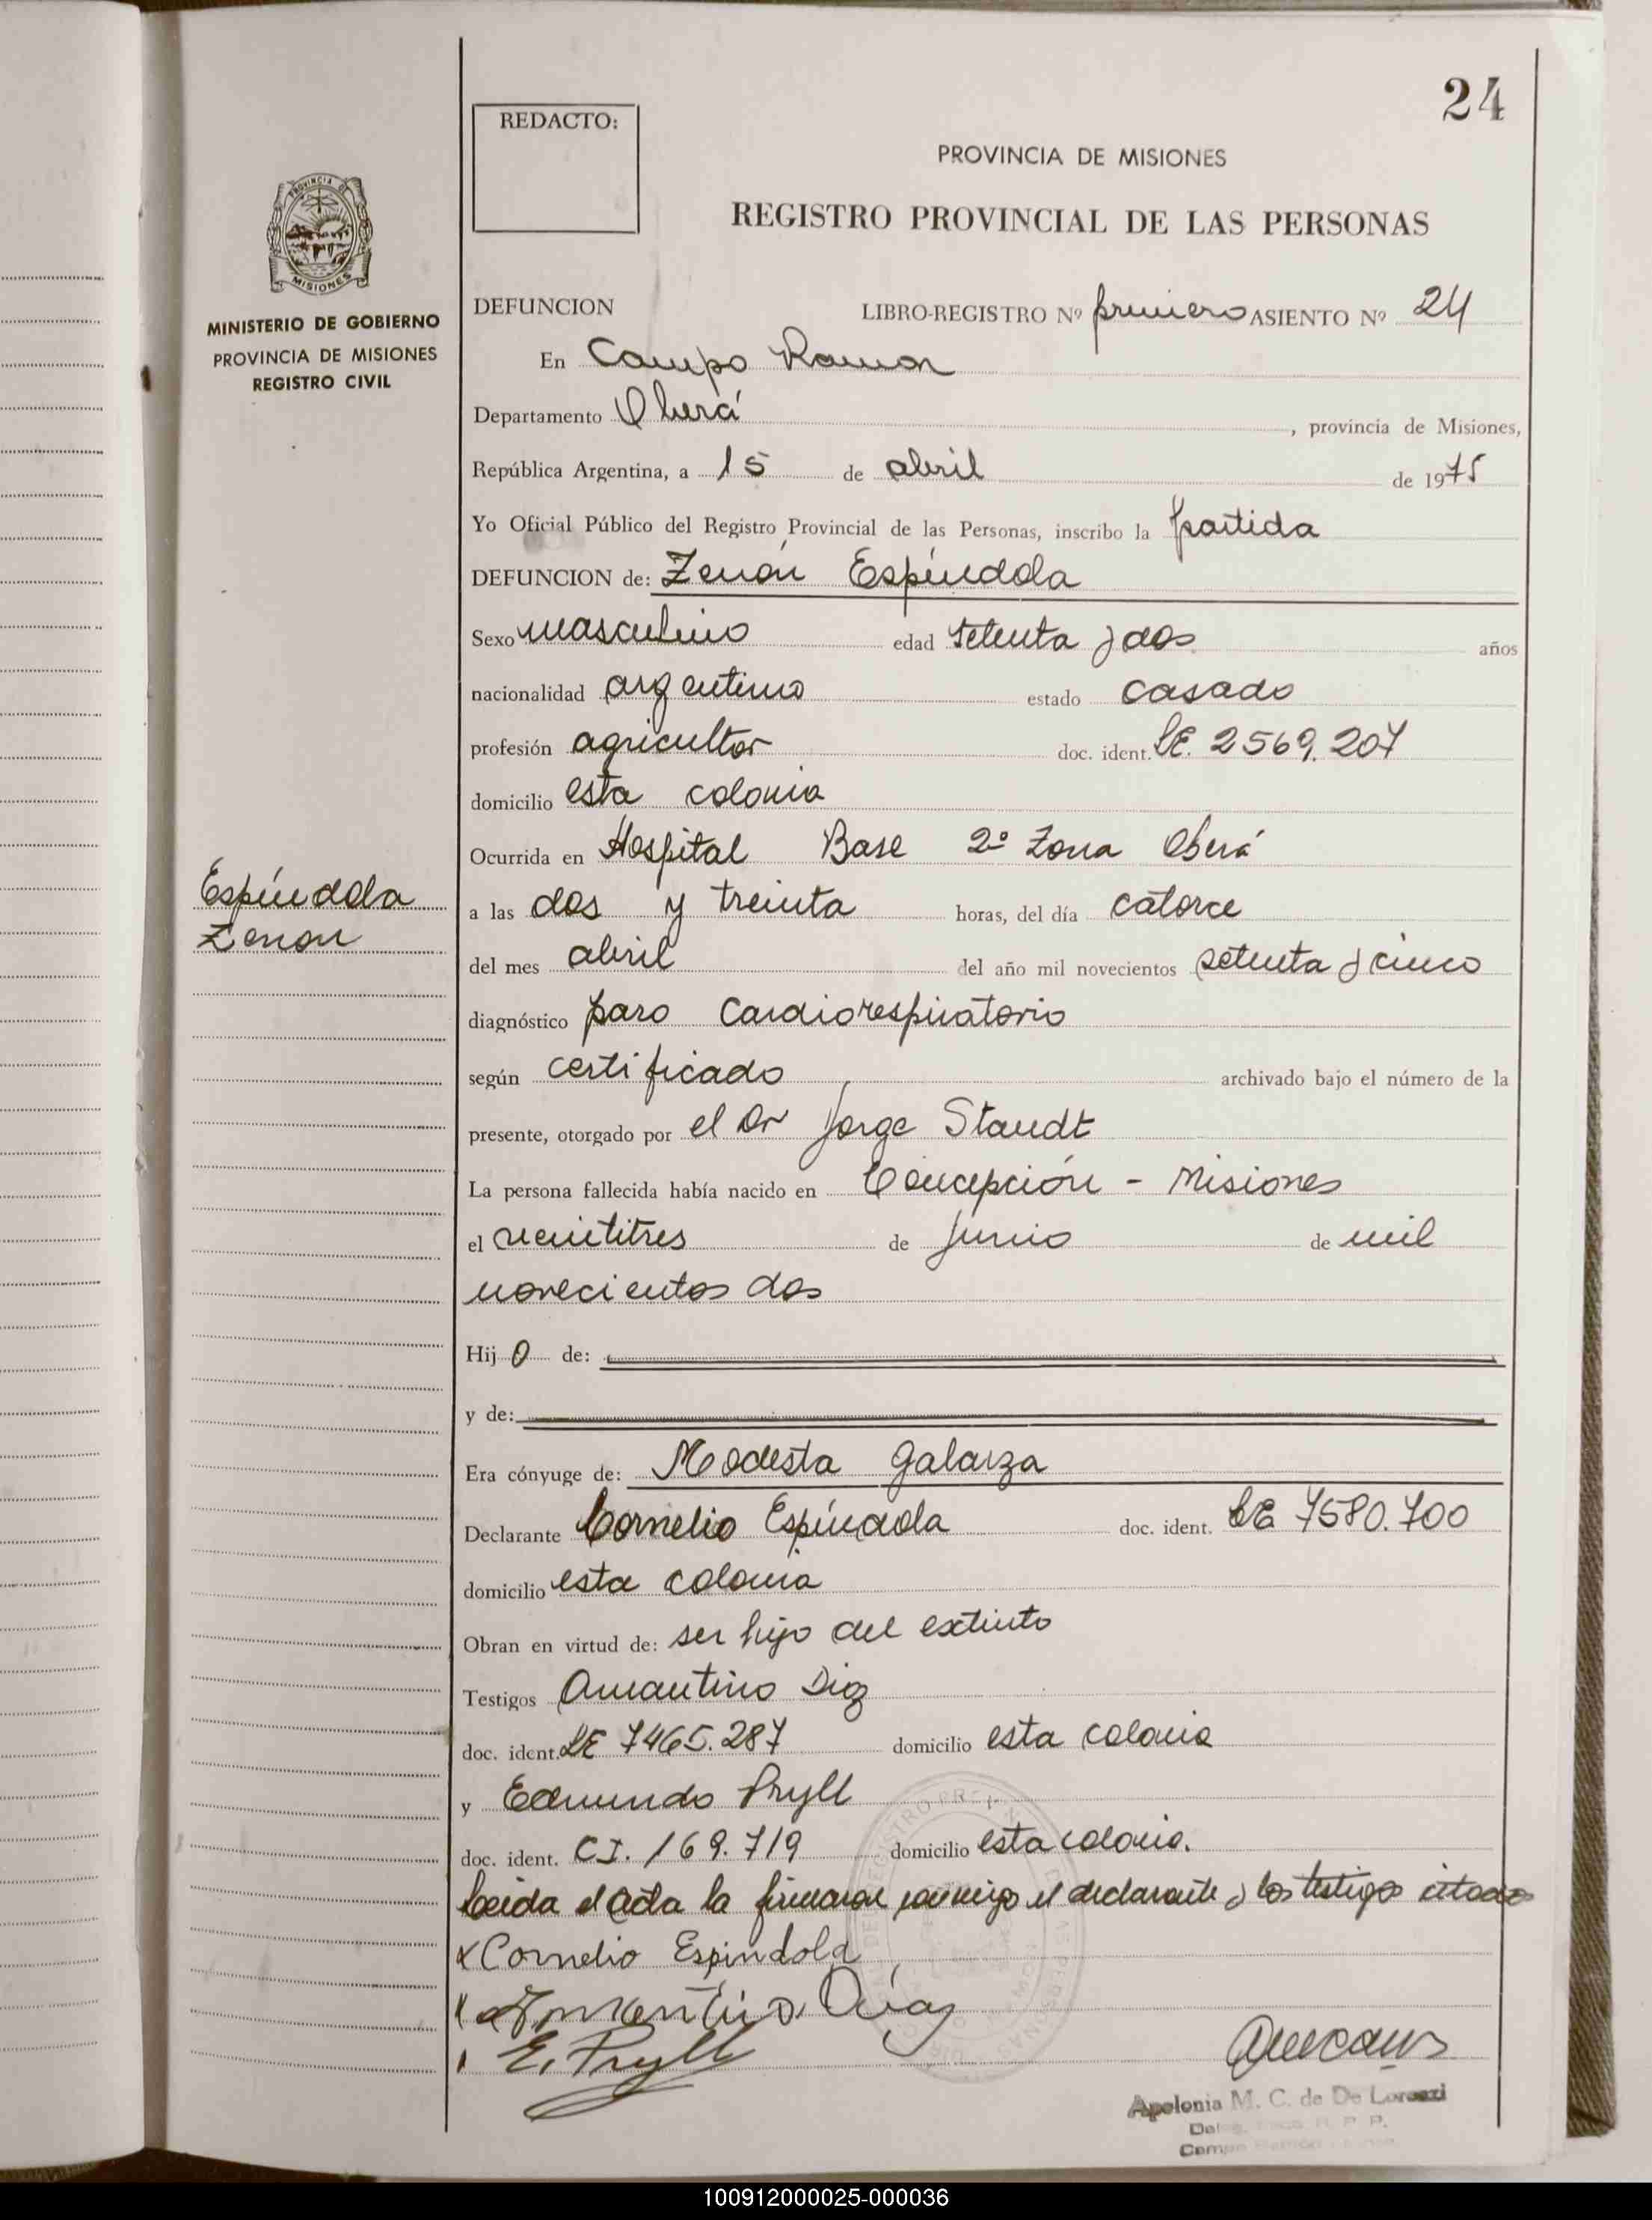 24
REDACTO:
PROVINCIA DE MISIONES
REGISTRO PROVINCIAL DE LAS PERSONAS
MISIONES
MINISTERIO DE GOBIERNO
PROVINCIA DE MISIONES
REGISTRO CIVIL
DEFUNCION LIBRO-REGISTRO Nº primero ASIENTO Nº 24
En Campo Ramon
Departamento Oberá , provincia de Misiones,
República Argentina, a 15 de abril de 1975
Yo Oficial Público del Registro Provincial de las Personas, inscribo la partida
DEFUNCION de: Zenón Espíndola
Sexo masculino edad setenta y dos años
nacionalidad argentino estado casado
profesión agricultor doc. ident. LE. 2569.207
domicilio esta colonia
Ocurrida en Hospital Base 2º Zona Oberá
Espíndola
Zenon
a las dos y treinta horas, del día catorce
del mes abril del año mil novecientos setenta y cinco
diagnóstico paro cardiorespiratorio
según certificado archivado bajo el número de la
presente, otorgado por el Dr Jorge Staudt
La persona fallecida había nacido en Concepción - Misiones
el veintitres de junio de mil
novecientos dos
Hij o de:
y de:
Era cónyuge de: Modesta Galarza
Declarante Cornelio Espíndola doc. ident. LE 7580.700
domicilio esta colonia
Obran en virtud de: ser hijo del extinto
Testigos Amantino Diaz
doc. ident. LE 7465.287 domicilio esta colonia
y Edmundo Pryll
doc. ident. C.I. 169.719 domicilio esta colonia.
Leida el acta la firmaron conmigo el declarante y los testigos citados
x Cornelio Espindola
Amantino Diaz
E. Pryll
Apolonia M. C. de De Lorenzi
100912000025-000036